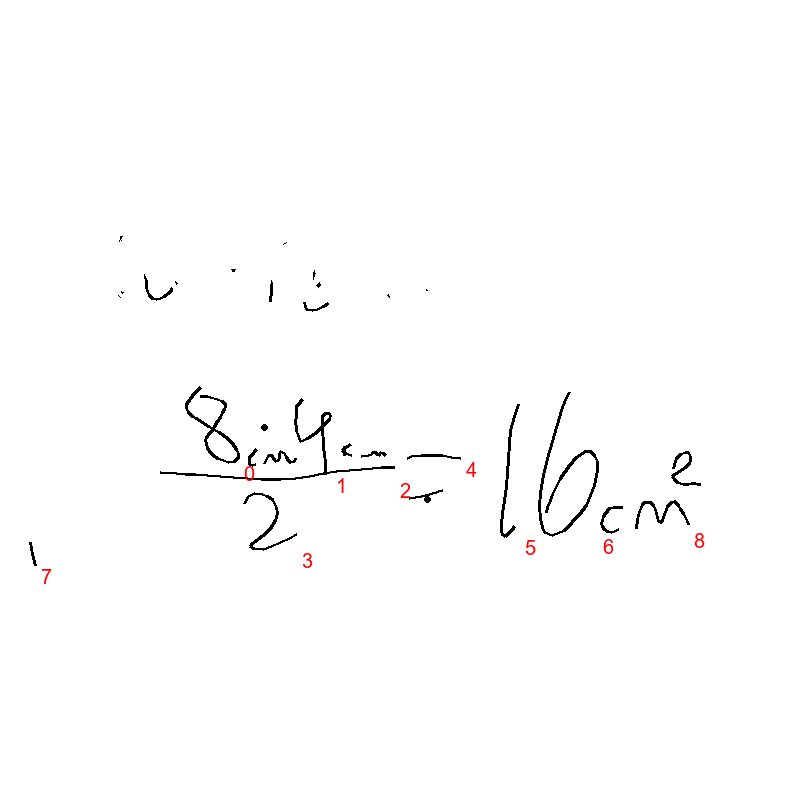 8cm · 4cm / 2 = 16cm²
0 1 2 3 4 5 6 7 8